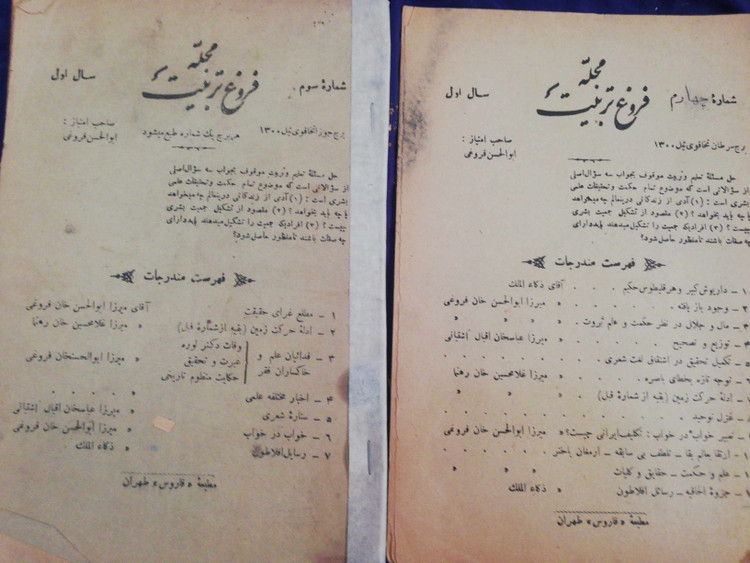 مجله
فروغ تربیت
شمارهٔ سوم
سال اول
برج جوزا تخاقوی ئیل ۱۳۰۰
هر برج یك شماره طبع میشود
صاحب امتیاز :
ابوالحسن فروغی
حل مسئلهٔ تعلیم و ثروت موقوف بجواب سه سؤال اصلی
از سؤالاتی است که موضوع تمام حکمت و تحقیقات علمی
بشری است : (۱) آدمی از زندگانی درینعالم چه میخواهد
یا چه باید بخواهد ؟ (۲) مقصود از تشکیل جمعیت بشری
چیست ؟ (۳) افرادیکه جمعیت را تشکیل میدهند باید دارای
چه صفات باشند تا منظور حاصل شود؟
فهرست مندرجات
۱ - مطلع غرای حقیقت آقای میرزا ابوالحسن خان فروغی
۲ - ادلهٔ حرکت زمین (بقیه از شمارهٔ قبل) » میرزا غلامحسین خان رهنما
۳ - فدائیان علم و خاکساران فقر
وفات دکتر لوره
عبرت و تحقیق
حکایت منظوم تاریخی
» میرزا ابوالحسنخان فروغی
۴ - اخبار مختلفه علمی
۵ - ستارهٔ شعری » میرزا عباسخان اقبال آشتیانی
۶ - خواب در خواب » میرزا ابوالحسن خان فروغی
۷ - رسایل افلاطون » ذکاء الملك
مطبعهٔ « فاروس » طهران
مجله
فروغ تربیت
شمارهٔ چهارم
سال اول
برج سرطان تخاقوی ئیل ۱۳۰۰
صاحب امتیاز :
ابوالحسن فروغی
حل مسئلهٔ تعلیم و ثروت موقوف بجواب سه سؤال اصلی
از سؤالاتی است که موضوع تمام حکمت و تحقیقات علمی
بشری است : (۱) آدمی از زندگانی درینعالم چه میخواهد
یا چه باید بخواهد ؟ (۲) مقصود از تشکیل جمعیت بشری
چیست ؟ (۳) افرادیکه جمعیت را تشکیل میدهند باید دارای
چه صفات باشند تا منظور حاصل شود؟
فهرست مندرجات
۱ - داریوش کبیر و هرقلیطوس حکیم آقای ذکاء الملك
۲ - وجود باز یافته میرزا ابوالحسن خان فروغی
۳ - مال و جلال در نظر حکمت و علم ثروت » »
۴ - توزیع و تصحیح » »
۵ - تکمیل تحقیق در اشتقاق لغت شعری میرزا عباسخان اقبال آشتیانی
توجه تازه بخطای باصره
ادلهٔ حرکت زمین (بقیه از شمارهٔ قبل) میرزا غلامحسین خان رهنما
تغزل توحید
تعبیر خواب در خواب : تکلیف ایرانی چیست؟ » میرزا ابوالحسن خان فروغی
ارتقا بعالم بقا - تلطف بی سابقه - ارمغان باختر » »
علم و حکمت - حقایق و کلیات » »
جزوهٔ اخلاقیه - رسائل افلاطون » ذکاء الملك
مطبعهٔ « فاروس » طهران